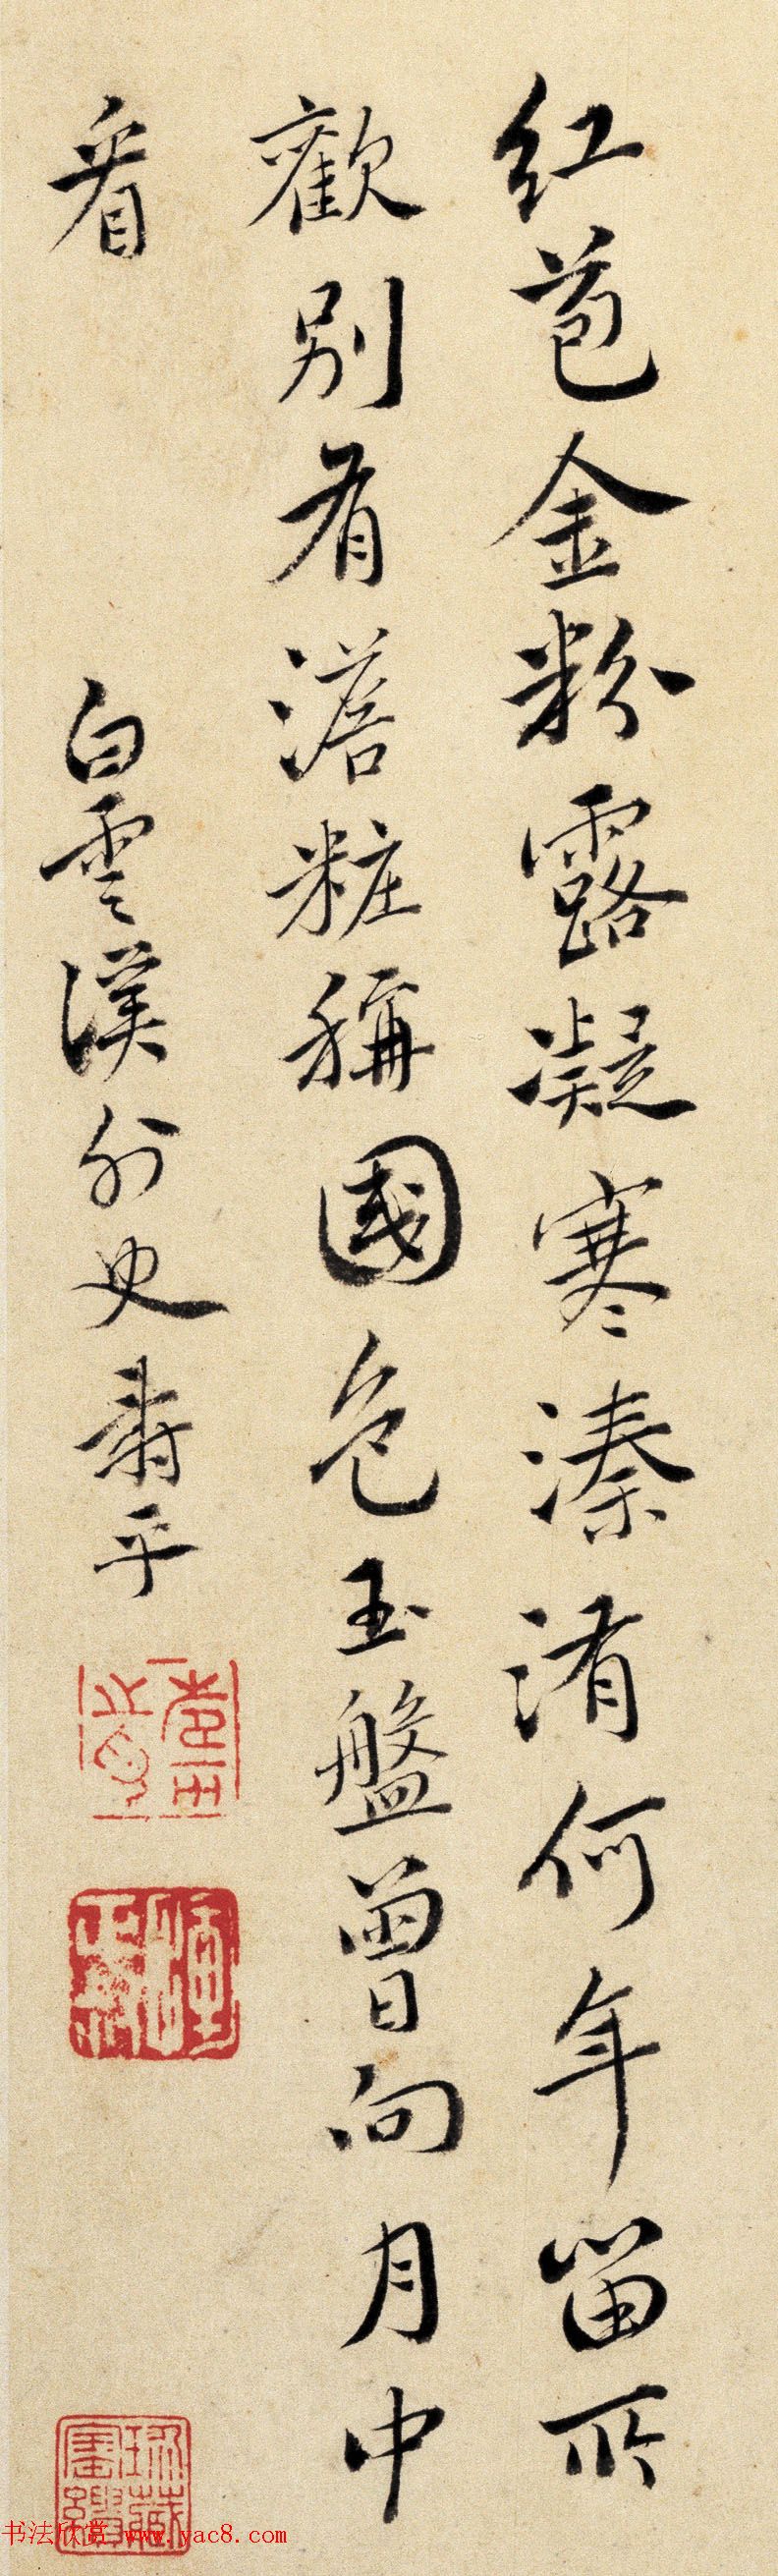 红苞金粉露凝寒溱洧何年留所
歡別有澹粧稱國色玉盤曾向月中
看
白雲溪外史壽平
书法欣赏 www.yac8.com